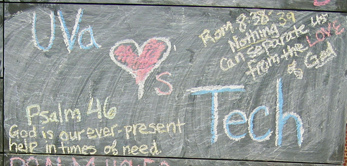 UVa
s
Tech
Rom 8:38 39
Nothing
can separate us
from the LOVE
of God
Psalm 46
God is our ever-present
help in times of need.